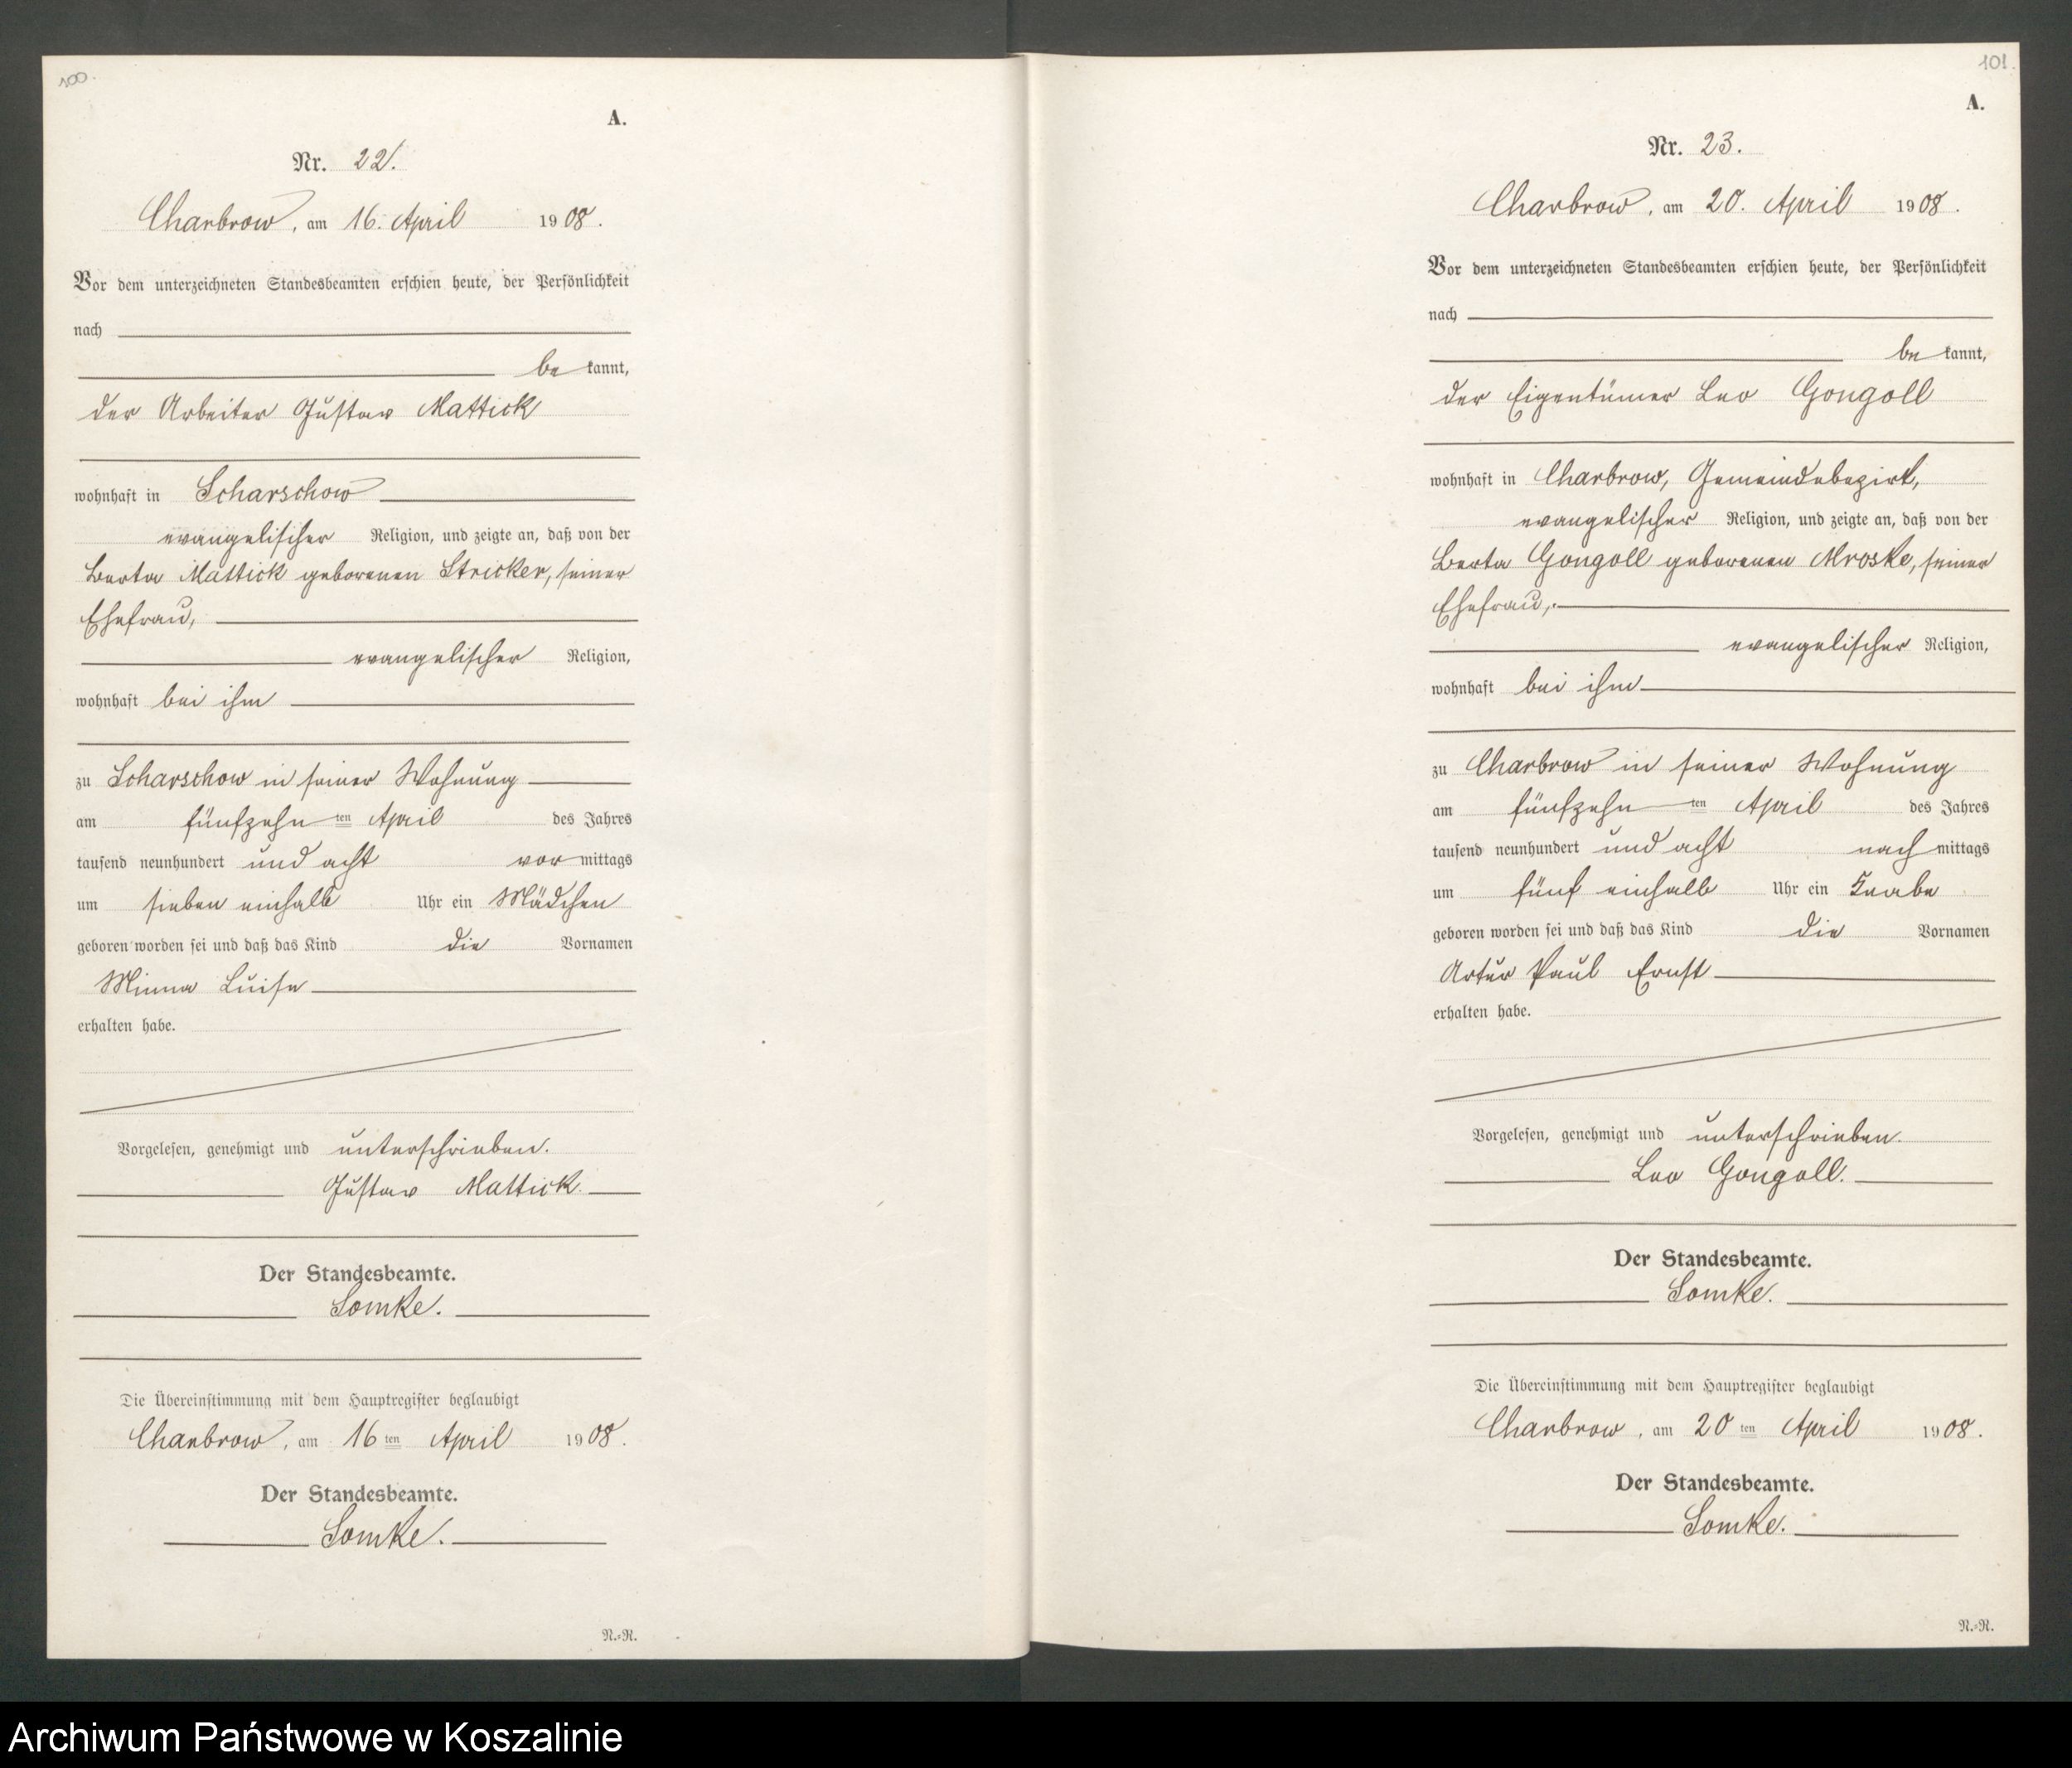 100.
A.
Nr. 22.
Charbrow, am 16. April 1908.
Vor dem unterzeichneten Standesbeamten erschien heute, der Persönlichkeit
nach
be kannt,
der Arbeiter Gustav Mattick
wohnhaft in Scharschow
evangelischer Religion, und zeigte an, daß von der
Berta Mattick geborenen Stricker, seiner
Ehefrau,
evangelischer Religion,
wohnhaft bei ihm
zu Scharschow in seiner Wohnung
am fünfzehn ten April des Jahres
tausend neunhundert und acht vor mittags
um sieben einhalb Uhr ein Mädchen
geboren worden sei und daß das Kind die Vornamen
Minna Luise
erhalten habe.
Vorgelesen, genehmigt und unterschrieben.
Gustav Mattick.
Der Standesbeamte.
Somke.
Die Übereinstimmung mit dem Hauptregister beglaubigt
Charbrow, am 16 ten April 1908.
Der Standesbeamte.
Somke.
N.=R.
101.
A.
Nr. 23.
Charbrow, am 20. April 1908.
Vor dem unterzeichneten Standesbeamten erschien heute, der Persönlichkeit
nach
be kannt,
der Eigentümer Leo Gongoll
wohnhaft in Charbrow, Gemeindebezirk,
evangelischer Religion, und zeigte an, daß von der
Berta Gongoll geborenen Mroske, seiner
Ehefrau,
evangelischer Religion,
wohnhaft bei ihm
zu Charbrow in seiner Wohnung
am fünfzehn ten April des Jahres
tausend neunhundert und acht nach mittags
um fünf einhalb Uhr ein Knabe
geboren worden sei und daß das Kind die Vornamen
Artur Paul Ernst
erhalten habe.
Vorgelesen, genehmigt und unterschrieben.
Leo Gongoll.
Der Standesbeamte.
Somke.
Die Übereinstimmung mit dem Hauptregister beglaubigt
Charbrow, am 20 ten April 1908.
Der Standesbeamte.
Somke.
N.=R.
Archiwum Państwowe w Koszalinie